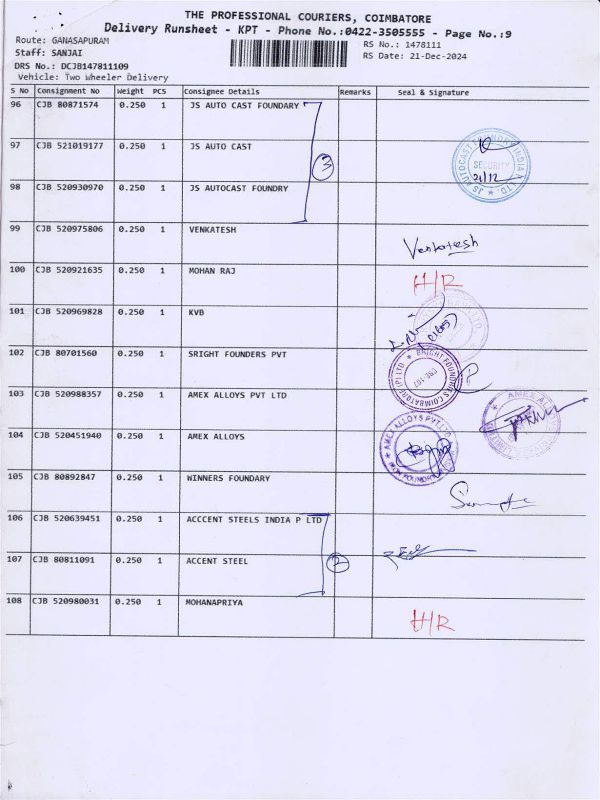 THE PROFESSIONAL COURIERS, COIMBATORE
Delivery Runsheet - KPT - Phone No.:0422-3505555 - Page No.:9
Route: GANASAPURAM
Staff: SANJAI
DRS No.: DCJB147811109
Vehicle: Two Wheeler Delivery
RS No.: 1478111
RS Date: 21-Dec-2024
S No Consignment No Weight PCS Consignee Details Remarks Seal & Signature
96 CJB 80871574 0.250 1 JS AUTO CAST FOUNDARY
97 CJB 521019177 0.250 1 JS AUTO CAST
3
JS AUTOCAST FOUNDRY INDIA P LTD
SECURITY
21/12
98 CJB 520930970 0.250 1 JS AUTOCAST FOUNDRY
99 CJB 520975806 0.250 1 VENKATESH
Venkatesh
100 CJB 520921635 0.250 1 MOHAN RAJ
H/R
101 CJB 520969828 0.250 1 KVB
102 CJB 80701560 0.250 1 SRIGHT FOUNDERS PVT
BRIGHT FOUNDRIES COIMBATORE (P) LTD
CBE-107
103 CJB 520988357 0.250 1 AMEX ALLOYS PVT LTD
AMEX ALLOYS
104 CJB 520451940 0.250 1 AMEX ALLOYS
AMEX ALLOYS PVT LTD
IRON FOUNDRY
105 CJB 80892847 0.250 1 WINNERS FOUNDARY
106 CJB 520639451 0.250 1 ACCCENT STEELS INDIA P LTD
107 CJB 80811091 0.250 1 ACCENT STEEL
2
108 CJB 520980031 0.250 1 MOHANAPRIYA
H/R